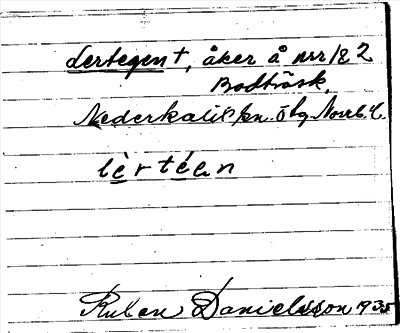 Lertegen †, åker å nrr 1 & 2
Bodträsk,
Nederkalix sn. Norrb. l.
lèrtéen
Ruben Danielsson 1935